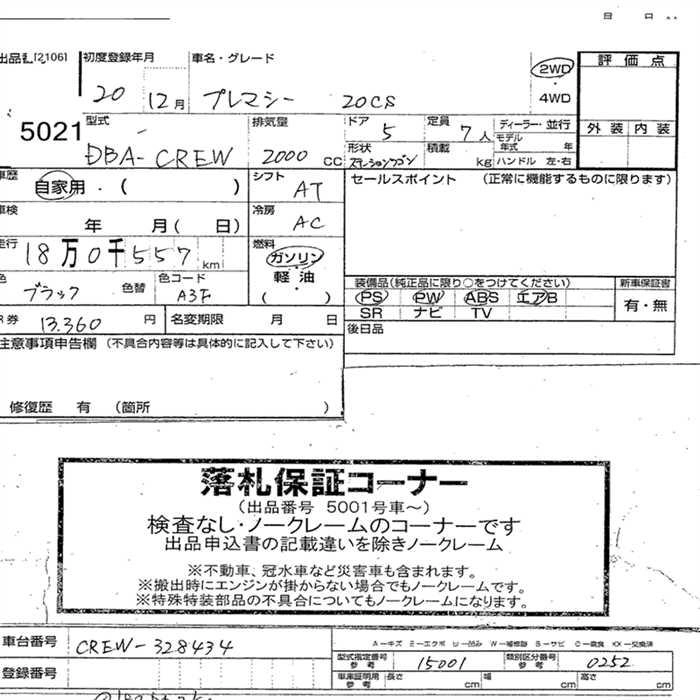 出品番[2106] 初度登録年月 車名・グレード 2WD 評価点
20 12月 プレマシー 20CS 4WD
5021 型式 排気量 ドア 5 定員 7人 ディーラー・並行 外装 内装
モデル年式 年
DBA-CREW 2000 cc 形状 ステーションワゴン 積載 kg ハンドル 左・右
車歴 自家用・( ) シフト AT セールスポイント (正常に機能するものに限ります)
車検 年 月( 日) 冷房 AC
走行 18万0千557km 燃料 ガソリン
軽油
( )
色 ブラック 色替 色コード A3F 装備品(純正品に限り○をつけてください) 新車保証書
PS PW ABS エアB 有・無
R券 13.360 円 名変期限 月 日 SR ナビ TV
後日品
注意事項申告欄 (不具合内容等は具体的に記入して下さい)
修復歴 有 (箇所 )
落札保証コーナー
(出品番号 5001号車~)
検査なし・ノークレームのコーナーです
出品申込書の記載違いを除きノークレーム
※不動車、冠水車など災害車も含まれます。
※搬出時にエンジンが掛からない場合でもノークレームです。
※特殊特装部品の不具合についてもノークレームになります。
車台番号 CREW-328434 A-キズ E-エクボ U-凹み W-補修跡 S-サビ C-腐食 XX-交換済
型式指定番号 参考 15001 類別区分番号 参考 0252
登録番号 車庫証明用 参考 長さ cm 幅 cm 高さ cm